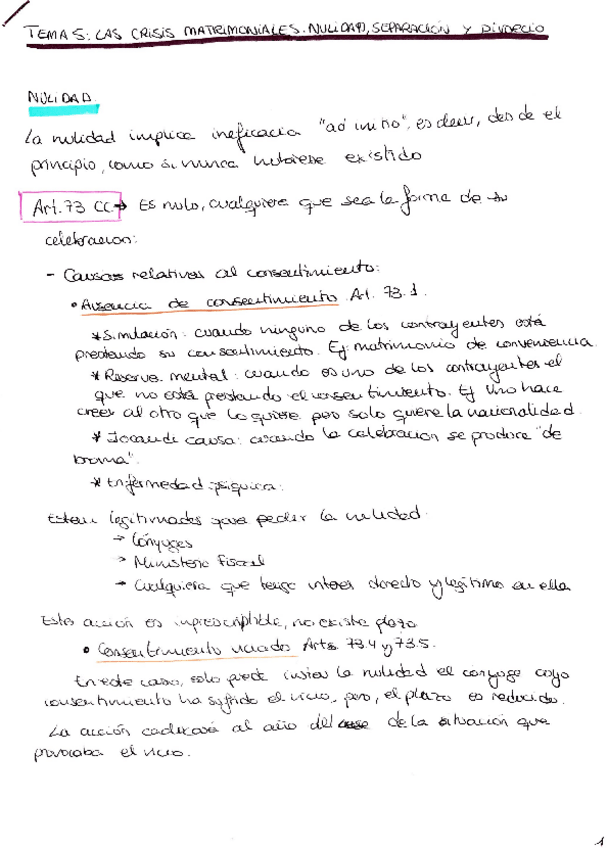 TEMA 5: LAS CRISIS MATRIMONIALES. NULIDAD, SEPARACIÓN Y DIVORCIO
NULIDAD
La nulidad implica ineficacia "ab initio", es decir, desde el
principio, como si nunca hubiese existido
Art. 73 CC → Es nulo, cualquiera que sea la forma de su
celebracion:
- Causas relativas al consentimiento:
• Ausencia de consentimiento. Art. 73.1.
* Simulación: cuando ninguno de los contrayentes está
prestando su consentimiento. Ej: matrimonio de conveniencia.
* Reserva mental: cuando es uno de los contrayentes el
que no está prestando el consentimiento. Ej Uno hace
creer al otro que lo quiere pero solo quiere la nacionalidad.
* Iocandi causa: cuando la celebracion se produce "de
broma".
* Enfermedad psiquica:
Estan legitimados para pedir la nulidad:
→ Cónyuges
→ Ministerio fiscal
→ Cualquiera que tenga interes directo y legitimo en ella
Esta acción es imprescriptible, no existe plazo
• Consentimiento viciado Arts. 73.4 y 73.5.
En este caso, solo puede instar la nulidad el conyuge cuyo
consentimiento ha sufrido el vicio, pero, el plazo es reducido.
La acción caducará al año del cese de la situación que
provocaba el vicio.
1